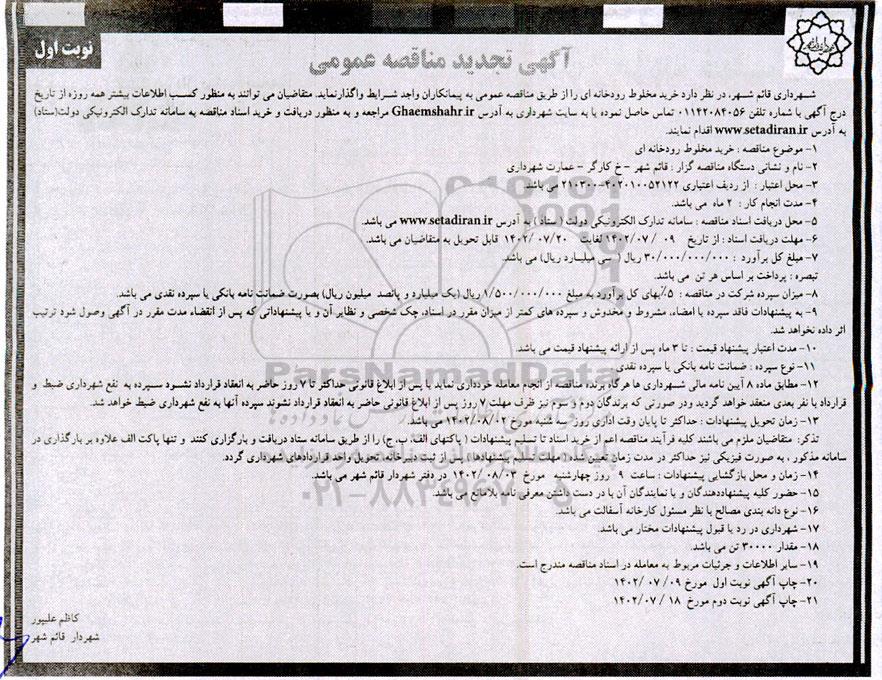 نوبت اول
آگهی تجدید مناقصه عمومی
شهرداری قائم شهر، در نظر دارد خرید مخلوط رودخانه ای را از طریق مناقصه عمومی به پیمانکاران واجد شرایط واگذار نماید. متقاضیان می توانند به منظور کسب اطلاعات بیشتر همه روزه از تاریخ
درج آگهی با شماره تلفن ۰۱۱۴۲۰۸۴۰۵۶ تماس حاصل نموده یا به سایت شهرداری به آدرس Ghaemshahr.ir مراجعه و به منظور دریافت و خرید اسناد مناقصه به سامانه تدارک الکترونیکی دولت(ستاد)
به آدرس www.setadiran.ir اقدام نمایند.
۱- موضوع مناقصه : خرید مخلوط رودخانه ای
۲- نام و نشانی دستگاه مناقصه گزار : قائم شهر - خ کارگر - عمارت شهرداری
۳- محل اعتبار : از ردیف اعتباری ۴۰۲۰۱۰۰۵۴۱۲۲-۲۱۰۳۰۰ می باشد.
۴- مدت انجام کار : ۲ ماه می باشد.
۵- محل دریافت اسناد مناقصه : سامانه تدارک الکترونیکی دولت (ستاد ) به آدرس www.setadiran.ir می باشد.
۶- مهلت دریافت اسناد : از تاریخ ۰۹ /۱۴۰۲/۰۷ لغایت ۱۴۰۲/۰۷/۲۰ قابل تحویل به متقاضیان می باشد.
۷- مبلغ کل برآورد : ۳۰/۰۰۰/۰۰۰/۰۰۰ ریال ( سی میلیارد ریال) می باشد.
تبصره : پرداخت بر اساس هر تن می باشد.
۸- میزان سپرده شرکت در مناقصه : ۵٪بهای کل برآورد به مبلغ ۱/۵۰۰/۰۰۰/۰۰۰ ریال (یک میلیارد و پانصد میلیون ریال) بصورت ضمانت نامه بانکی یا سپرده نقدی می باشد.
۹- به پیشنهادات فاقد سپرده یا امضاء، مشروط و مخدوش و سپرده های کمتر از میزان مقرر در اسناد، چک شخصی و نظایر آن و یا پیشنهاداتی که پس از انقضاء مدت مقرر در آگهی وصول شود ترتیب
اثر داده نخواهد شد.
۱۰- مدت اعتبار پیشنهاد قیمت : تا ۳ ماه پس از ارائه پیشنهاد قیمت می باشد.
۱۱- نوع سپرده : ضمانت نامه بانکی یا سپرده نقدی
۱۲- مطابق ماده ۸ آیین نامه مالی شهرداری ها هرگاه برنده مناقصه از انجام معامله خودداری نماید یا پس از ابلاغ قانونی حداکثر تا ۷ روز حاضر به انعقاد قرارداد نشود سپرده به نفع شهرداری ضبط و
قرارداد با نفر بعدی منعقد خواهد گردید ودر صورتی که برندگان دوم و سوم نیز ظرف مهلت ۷ روز پس از ابلاغ قانونی حاضر به انعقاد قرارداد نشوند سپرده آنها به نفع شهرداری ضبط خواهد شد.
۱۳- زمان تحویل پیشنهادات : حداکثر تا پایان وقت اداری روز سه شنبه مورخ ۱۴۰۲/۰۸/۰۲ می باشد.
تذکر: متقاضیان ملزم می باشند کلیه فرآیند مناقصه اعم از خرید اسناد تا تسلیم پیشنهادات ( پاکتهای الف، ب، ج) را از طریق سامانه ستاد دریافت و بارگزاری کنند و تنها پاکت الف علاوه بر بارگذاری در
سامانه مذکور ، به صورت فیزیکی نیز حداکثر در مدت زمان تعیین شده (مهلت تسلیم پیشنهادها ) پس از ثبت دبیرخانه، تحویل واحد قراردادهای شهرداری گردد.
۱۴- زمان و محل بازگشایی پیشنهادات : ساعت ۹ روز چهارشنبه مورخ ۱۴۰۲/۰۸/۰۳ در دفتر شهردار قائم شهر می باشد.
۱۵- حضور کلیه پیشنهاددهندگان و یا نمایندگان آن با در دست داشتن معرفی نامه بلامانع می باشد.
۱۶- نوع دانه بندی مصالح با نظر مسئول کارخانه آسفالت می باشد.
۱۷- شهرداری در رد یا قبول پیشنهادات مختار می باشد.
۱۸- مقدار ۳۰۰۰۰ تن می باشد.
۱۹- سایر اطلاعات و جزئیات مربوط به معامله در اسناد مناقصه مندرج است.
۲۰- چاپ آگهی نوبت اول مورخ ۰۹/ ۰۷/ ۱۴۰۲
۲۱- چاپ آگهی نوبت دوم مورخ ۱۸ /۱۴۰۲/۰۷
کاظم علیپور
شهردار قائم شهر
ParsNamadData
۰۲۱-۸۸۳۴۹۶۷۰-۵